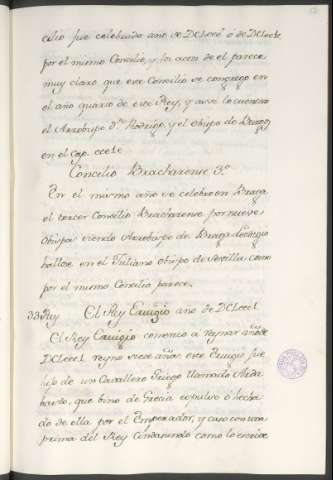 cilio fue celebrado año de DCLxxx ó de DCLxxxte
por el mismo Concilio, y los actos de el parece
muy claro que este Concilio se congregó en
el año quarto de este Rey, y assi lo cuentan
el Arzobispo Dn Rodrigo, y el Obispo de Burgos
en el Cap.
Concilio Bracharense 3º
En el mismo año se celebro en Braga
el tercer Concilio Bracharense por nueve
Obispos siendo Arzobispo de Braga
hallose en el Juliano Obispo de Sevilla, como
por el mismo Concilio parece.
33 Rey El Rey Eruigio año de DCLxxxI
El Rey Eruigio comenzó a reynar año de
DCLxxxI reyno siete años este Eruigio fue
hijo de un Cavallero Griego llamado Arda
basto, que bino de Grecia expulso ó hecha
do de ella por el Emperador, y caso con una
prima del Rey como lo escrive